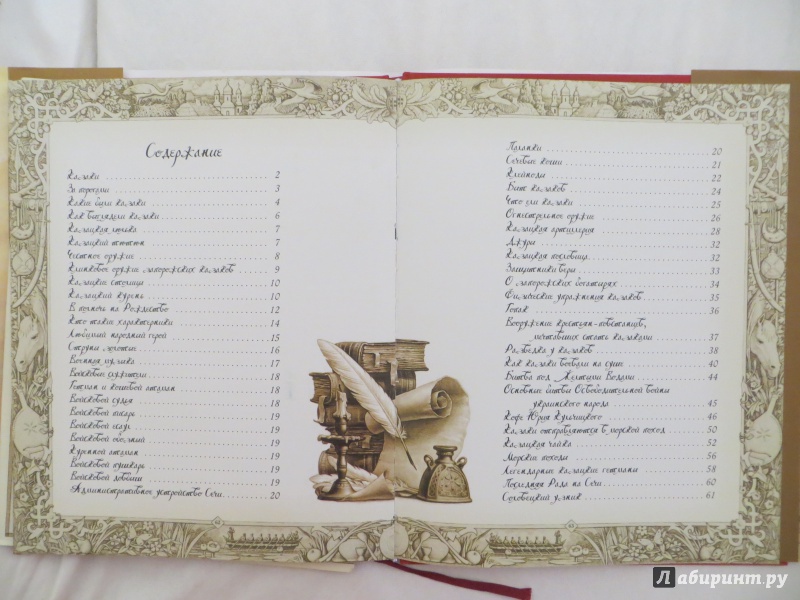 Содержание
Казаки 2
За порогами 3
Какие были казаки 4
Как выглядели казаки 6
Казацкая люлька 7
Казацкий аптаптп 7
Холодное оружие 8
Клинковое оружие запорожских казаков 9
Казацкие столицы 10
Казацкий курень 10
В полночь на Рождество 12
Кто такие характерники 14
Любимый народный герой 15
Струны золотые 16
Военная музыка 17
Войсковые служители 18
Гетман и кошевой атаман 18
Войсковой судья 18
Войсковой писарь 19
Войсковой есаул 19
Войсковой обозный 19
Куренной атаман 19
Войсковой пушкарь 19
Войсковой довбыш 19
Административное устройство Сечи 20
Паланки 20
Сечевые коши 21
Клейноды 22
Быт казаков 24
Что ели казаки 25
Огнестрельное оружие 26
Казацкая артиллерия 28
Джуры 32
Казацкая пословица 32
Защитники веры 33
О запорожских богатырях 34
Физические упражнения казаков 35
Гопак 36
Вооружение крестьян-повстанцев,
мечтавших стать казаками 37
Разведка у казаков 38
Как казаки воевали на суше 40
Битва под Желтыми Водами 44
Основные битвы Освободительной войны
украинского народа 45
Кофе Юрия Кульчицкого 46
Казаки отправляются в морской поход 50
Казацкая чайка 52
Морские походы 56
Легендарные казацкие гетманы 58
Последняя Рада на Сечи 60
Соловецкий узник 61
Лабиринт.ру